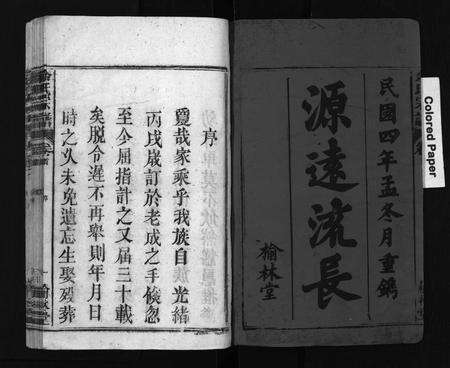 民國四年孟冬月重鐫
源遠流長
榆林堂
Colored Paper
序
哉家乘乎我族自光緒
丙戌歲訂於老成之手倏忽
至今屈指計之又届三十載
矣脱令遲不再舉則年月日
時之久未免遺忘生娶殁葬